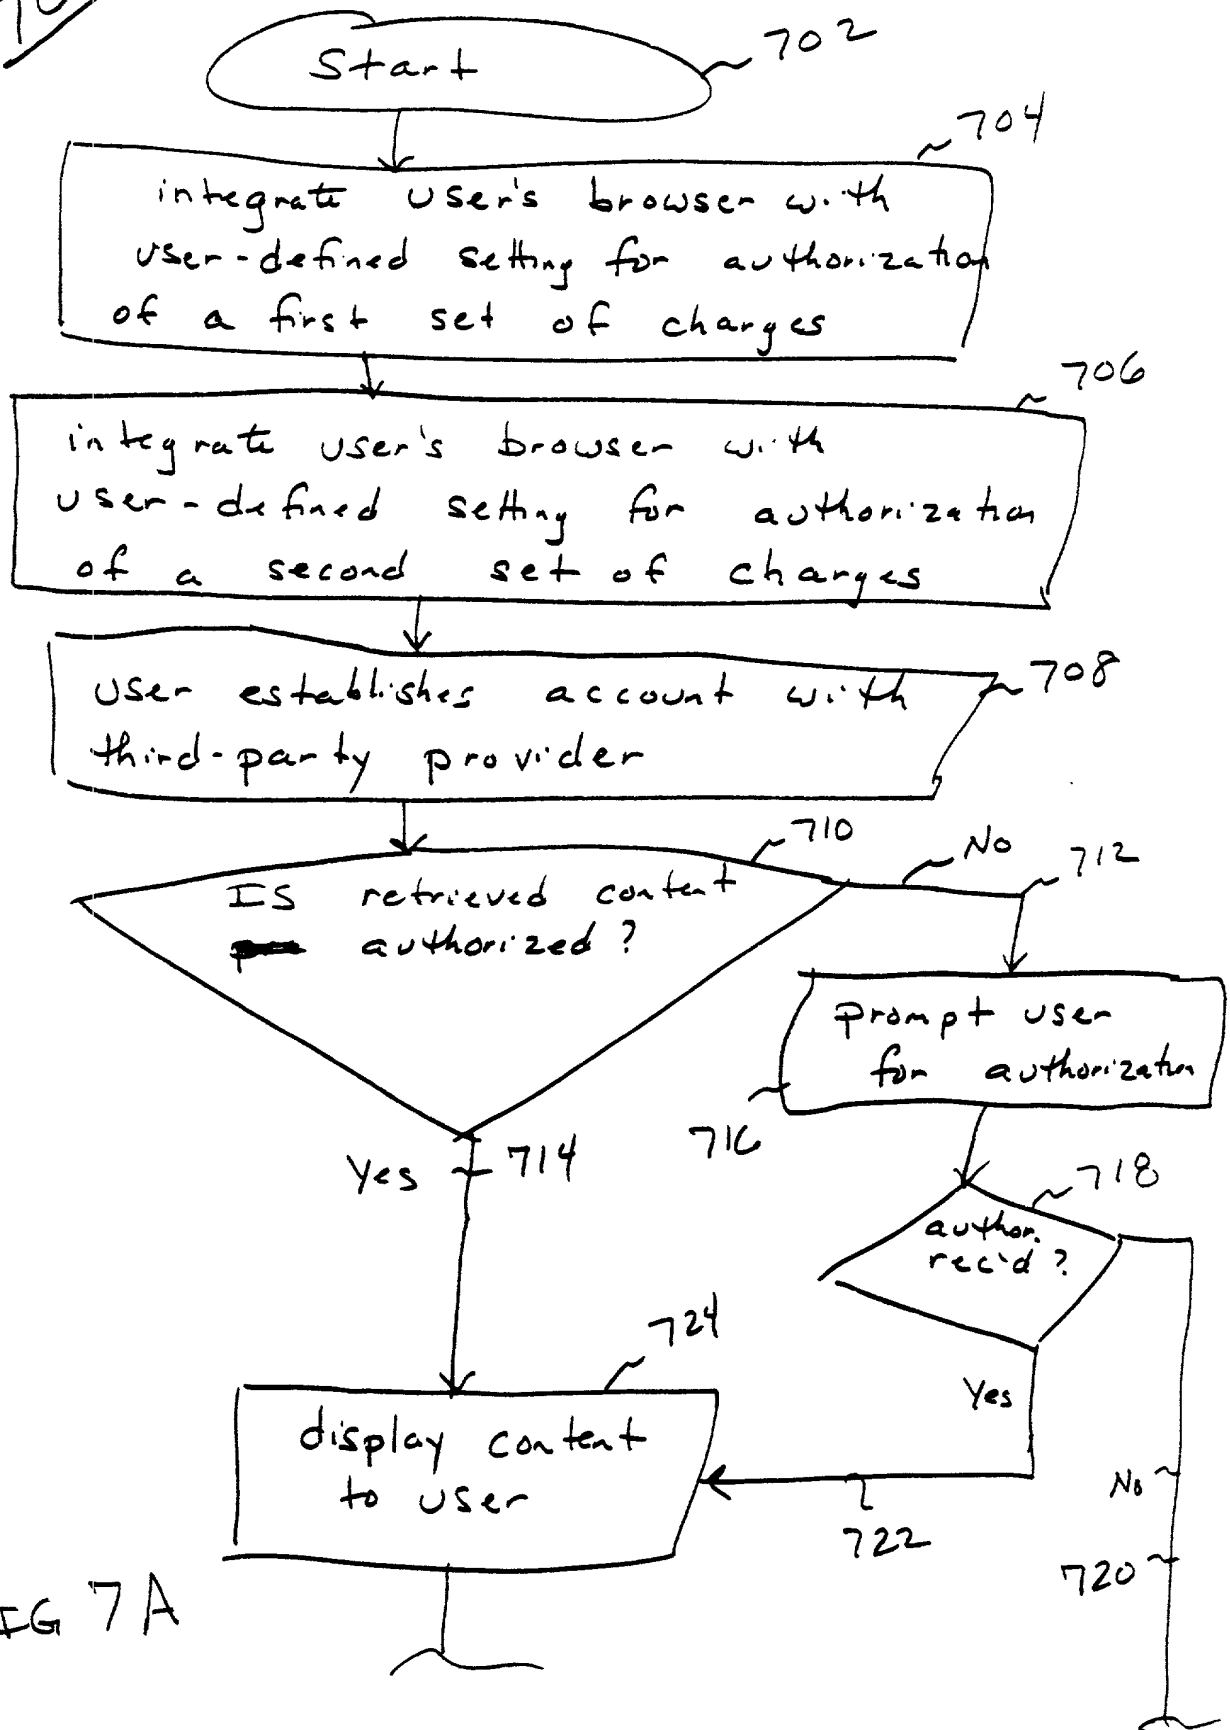 Start
702
704
integrate user's browser with
user-defined setting for authorization
of a first set of charges
706
integrate user's browser with
user-defined setting for authorization
of a second set of charges
708
user establishes account with
third-party provider
710
No
712
IS retrieved content
authorized?
prompt user
for authorization
716
Yes
714
718
author.
rec'd?
724
Yes
display content
to user
No
722
720
7A